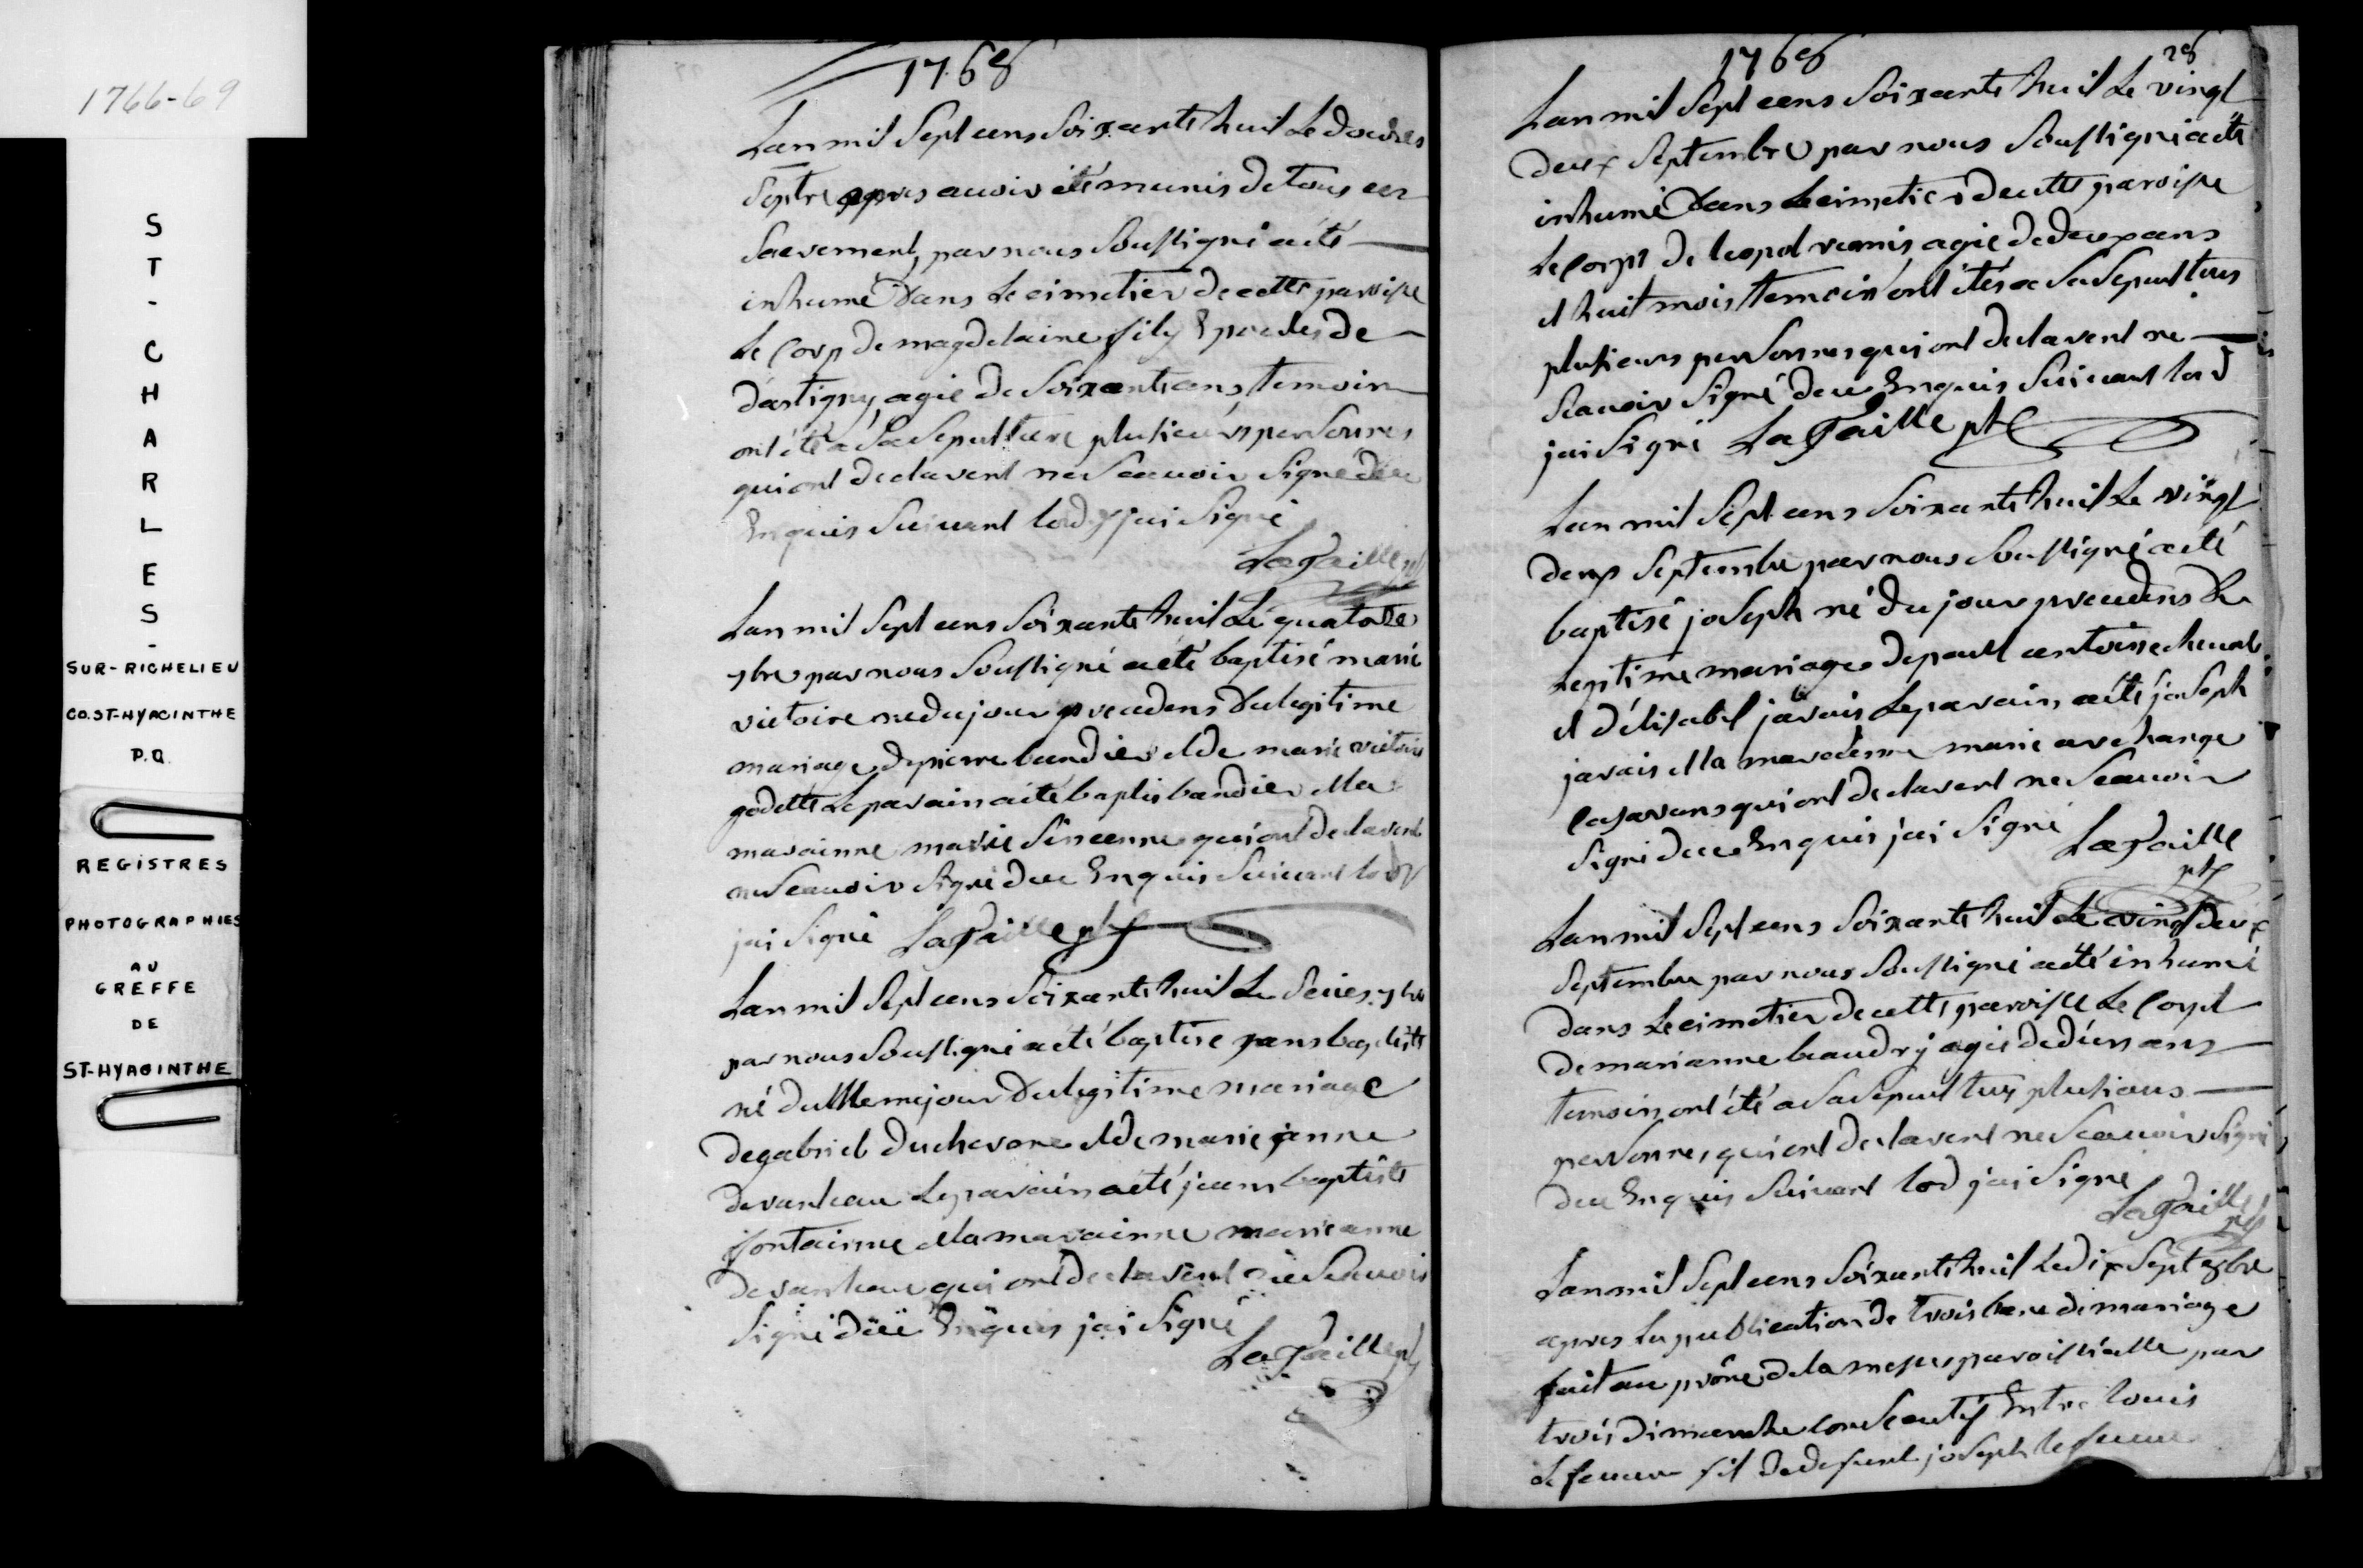 1766-69
ST-CHARLES-
SUR-RICHELIEU
CO. ST-HYACINTHE
P.Q.
REGISTRES
PHOTOGRAPHIES
AU
GREFFE
DE
ST-HYACINTHE
1768
Lan mil Sept cens Soixante huit Le douzes
Septre apres avoir été munis de tous ces
Sacrement, par nous Soussigné a été
inhumé dans le cimetier de cette paroisse
le Corp de magdelaine fily Epouse de
dartigny, agée de Soixante ans temoin
ont été a Sa Sepulture plusieurs personnes
qui ont declarent ne Scauoir Signé de ce
Enquis Suiuant lord j'ai Signé
Lataille ptr
Lan mil Sept cens Soixante huit Le quatorze
7bre par nous Soussigné a été baptisé marie
victoire ne du jour precedens du legitime
mariage de pierre baudier et de marie victoire
godette Le parain a été baptis baudier et la
marainne marie qui ont declarent
ne Scauoir Signé de ce Enquis Suiuant lord
jai Signé Lataille ptr
Lan mil Sept cens Soixante huit Le Seizes 7bre
par nous Soussigné a été baptise jans baptiste
né du Meme jour du legitime mariage
de gabriel ducharme et de marie janne
Le parain a été jean baptiste
fontainne et la marainne marie anne
qui ont declarent ne Scauoir
Signé de ce Enquis jai Signé
Lataille ptr
1768
28
Lan mil Sept cens Soixante huit Le vingt
deux Septembre par nous Soussigné a été
inhumé dans le cimetier de cette paroisse
le Corps de leopol agée de deux ans
et huit mois temoin ont étés a Sa Sepultures
plusieurs personnes qui ont declarent ne
Scauoir Signé de ce Enquis Suiuant lord
jai Signé LaTaille ptr
Lan mil Sept cens Soixante huit Le vingt
deux Septembre par nous Soussigné a été
baptisé joseph né du jour precedens du
legitime mariage de paul antoine
et d'élisabet javais Le parain a été joseph
javais et la marainne marie archange
Casavans qui ont declarent ne Scauoir
Signé de ce Enquis jai Signé LaTaille
ptr
Lan mil Sept cens Soixante huit Le vingt deux
Septembre par nous Soussigné a été inhumé
dans le cimetier de cette paroisse le Corps
de marianne beaudry agée de ans
temoin ont été a Sa Sepulture plusieurs
personnes qui ont declarent ne Scauoir Signé
de ce Enquis Suiuant lord jai Signé
LaTaille ptr
Lan mil Sept cens Soixante huit Le dix Sept 8bre
apres la publication de trois banc de mariage
fait au prône de la messes paroissialle par
trois dimanche consecutif Entre louis
lefeuure fil de defunt joseph lefeuure